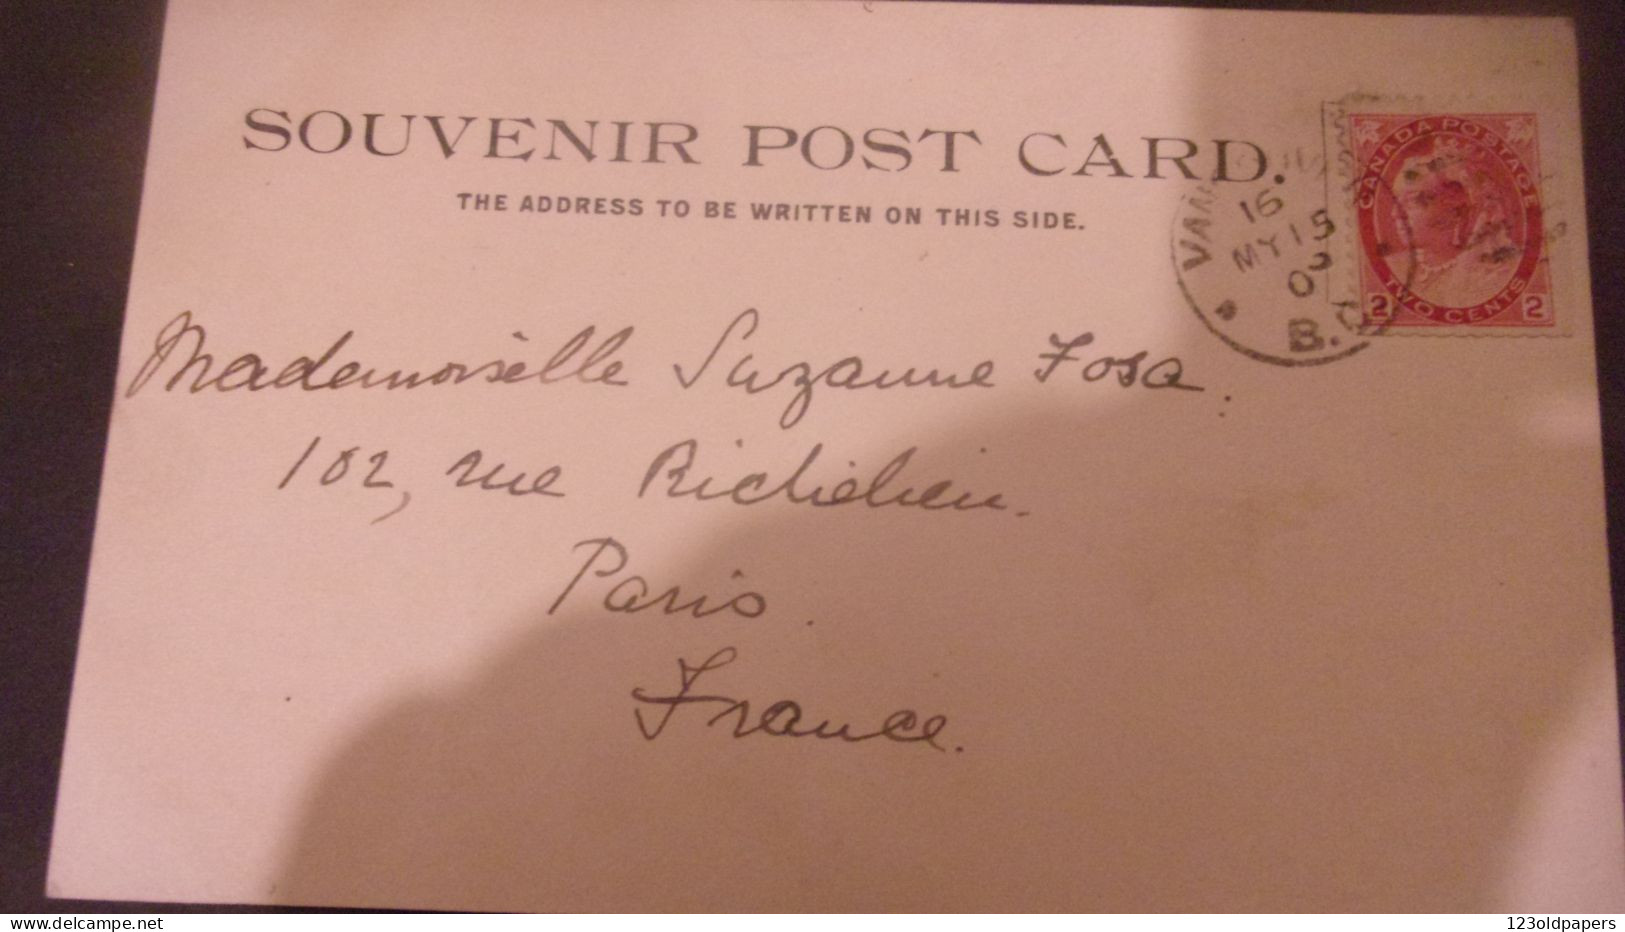 SOUVENIR POST CARD.
THE ADDRESS TO BE WRITTEN ON THIS SIDE.
CANADA POSTAGE
2 TWO CENTS 2
16
MY 15
B.C.
Mademoiselle Suzanne Fosa.
102, rue Richelieu.
Paris.
France.
123oldpapers